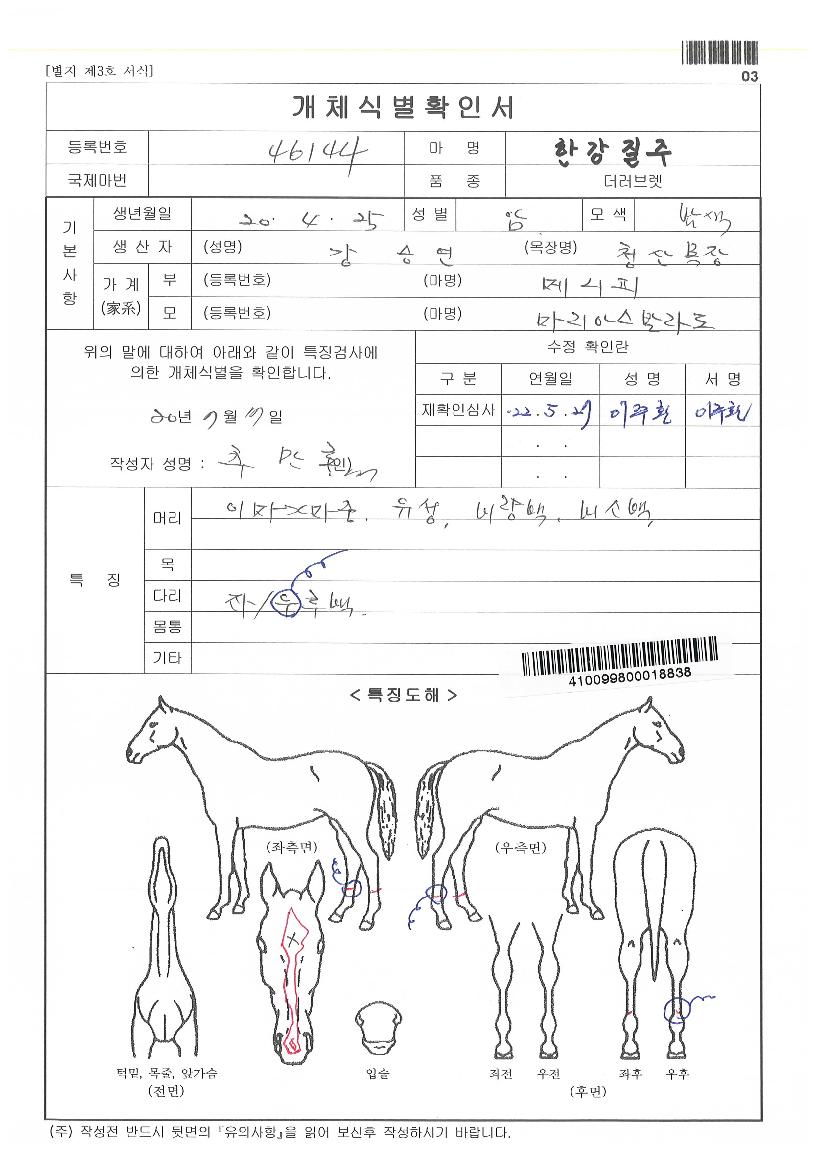 [별지 제3호 서식]
03
개체식별확인서
등록번호 46144 마 명 한강질주
국제마번 품 종 더러브렛
기본사항
생년월일 20. 4. 25 성별 암 모색 밤색
생산자 (성명) 강승연 (목장명) 청산목장
가계 (家系) 부 (등록번호) (마명) 메니피
모 (등록번호) (마명) 마리아스발라드
위의 말에 대하여 아래와 같이 특징검사에
의한 개체식별을 확인합니다.
20년 7월 17일
작성자 성명 : (인)
수정 확인란
구분 연월일 성명 서명
재확인심사 22. 5. 27 이주환 이주환
. .
. .
특 징
머리 이마X마준, 유성, 비량백, 비소백,
목
다리 좌/우후백.
몸통
기타
410099800018838
< 특징도해 >
(좌측면) (우측면)
턱밑, 목줄, 앞가슴
(전면)
입술
좌전 우전 좌후 우후
(후면)
(주) 작성전 반드시 뒷면의 『유의사항』을 읽어 보신후 작성하시기 바랍니다.